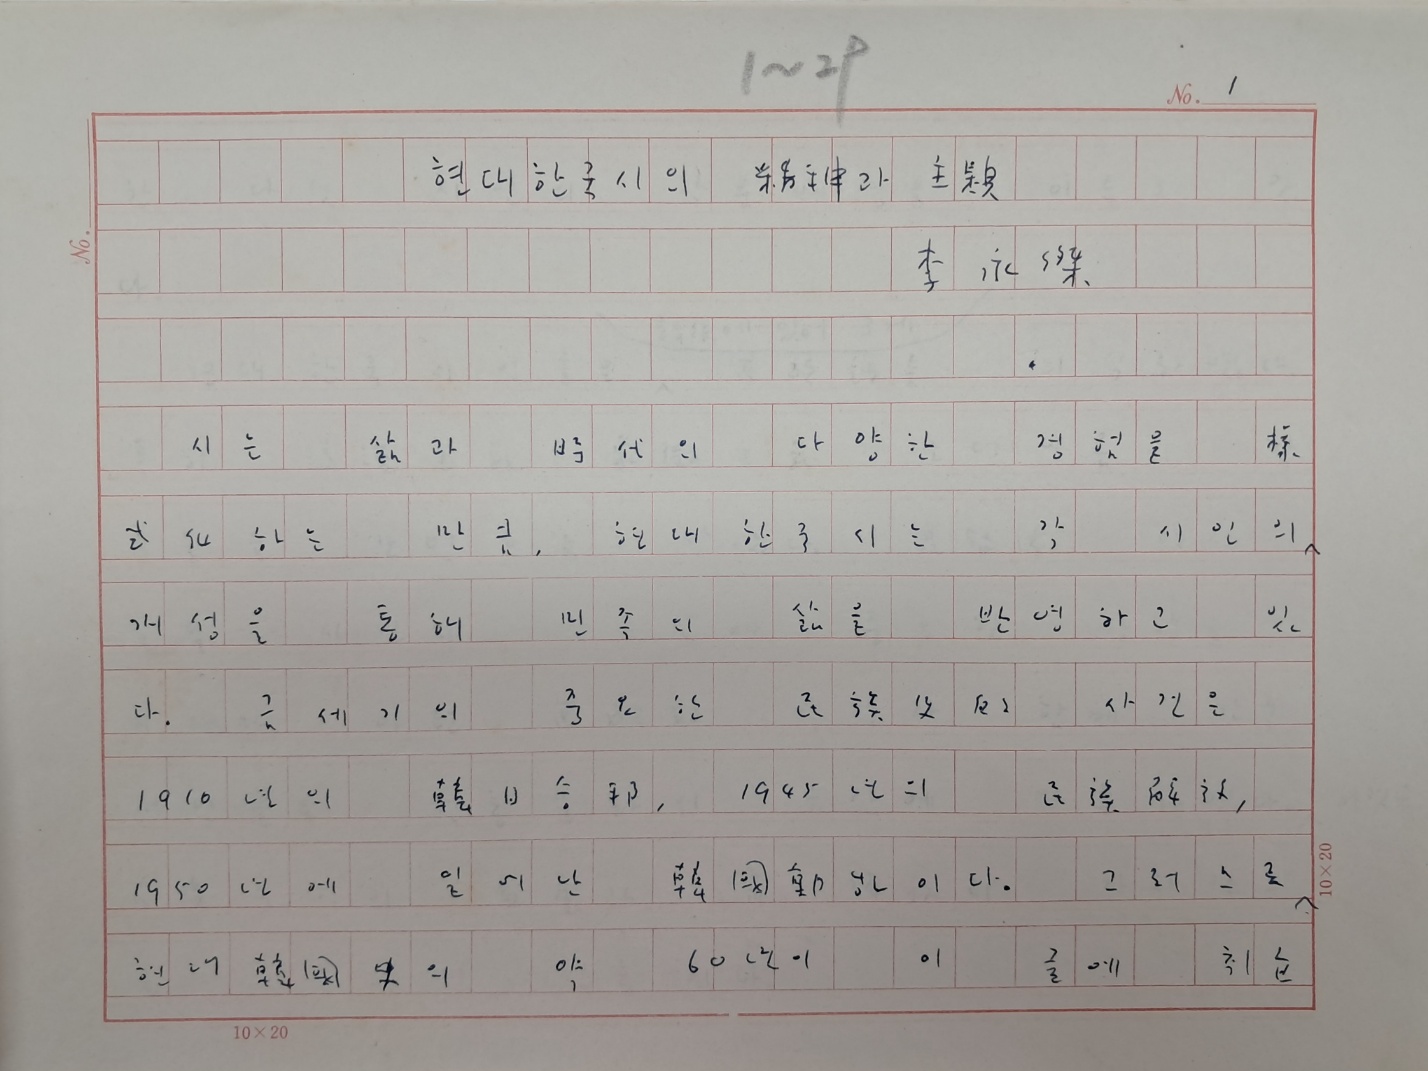 1~2P
No. 1
현대한국시의 精神과 主題
No.
李永
시는 삶과 시대의 다양한 경험을 樣
式化하는 만큼, 현대한국시는 각 시인의
개성을 통해 민족의 삶을 반영하고 있
다. 금세기의 중요한 民族史的 사건은
1910년의 韓日合邦, 1945년의 民族解放,
1950년에 일어난 韓國動乱이다. 그러므로
현대韓國史의 약 60년이 이 글에
10×20
10×20